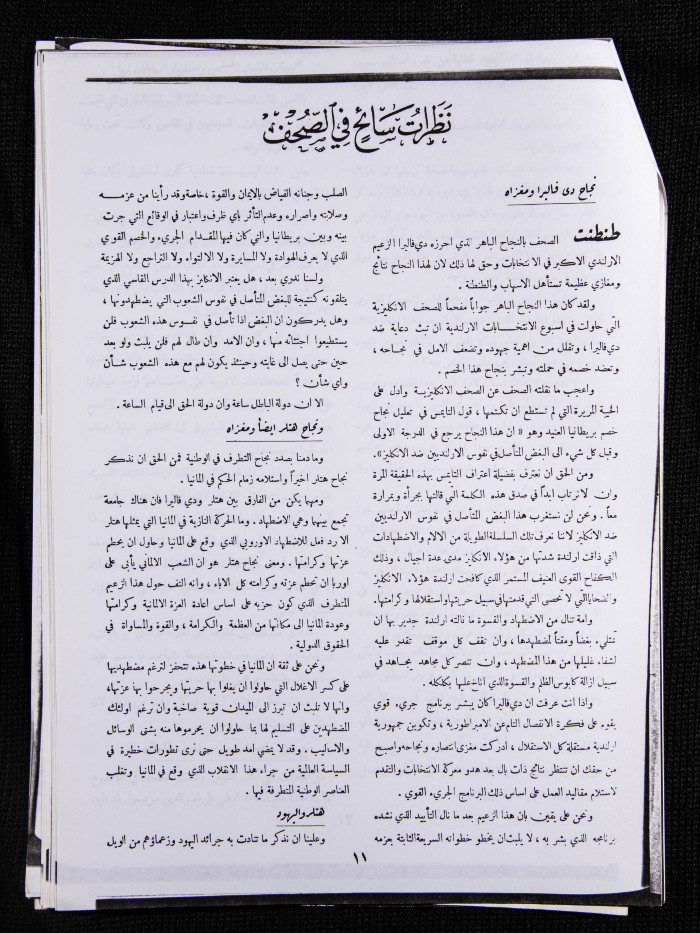 نظرات سائح في الصحف
نجاح دى فاليرا ومغزاه
طنطنت الصحف بالنجاح الباهر الذي احرزه دي فاليرا الزعيم
الارلندي الاكبر في الانتخابات وحق لها ذلك لان لهذا النجاح نتائج
ومغازي عظيمة تستأهل الاسهاب والطنطنة .
ولقد كان هذا النجاح الباهر جواباً مفحماً للصحف الانكليزية
التي حاولت في اسبوع الانتخابات الارلندية ان تبث دعاية ضد
دي فاليرا ، وتقلل من اهمية جهوده وتضعف الامل في نجاحه ،
وتعضد خصمه في حملته وتبشر بنجاح هذا الخصم .
واعجب ما نقلته الصحف عن الصحف الانكليزية وادل على
الخيبة المريرة التي لم تستطع ان تكتمها ، قول التايمس في تعليل نجاح
خصم بريطانيا العنيد وهو « ان هذا النجاح يرجع في الدرجة الاولى
وقبل كل شيء الى البغض المتأصل في نفوس الارلنديين ضد الانكليز».
ومن الحق ان نعترف بفضيلة اعتراف التايمس بهذه الحقيقة المرة
وان لا نرتاب ابداً في صدق هذه الكلمة التي قالتها بجرأة وبمرارة
معاً . ونحن لن نستغرب هذا البغض المتأصل في نفوس الارلنديين
ضد الانكليز لاننا نعرف تلك السلسلة الطويلة من الالام والاضطهادات
التي ذاقت ارلندة شدتها من هؤلاء الانكليز مدى عدة اجيال ، وذلك
الكفاح القوى العنيف المستمر الذي كافحت ارلندة هؤلاء الانكليز
والضحايا التي لا تحصى التي قدمتها في سبيل حريتها واستقلالها وكرامتها.
وامة تنال من الاضطهاد والقسوة ما نالته ارلندة جدير بها ان
تمتلىء بغضاً ومقتاً لمضطهدها ، وان تقف كل موقف تقدر عليه
لشفاء غليلها من هذا المضطهد ، وان تنصر كل مجاهد يجاهد في
سبيل ازالة كابوس الظلم والقسوة الذي اناخ عليها بكلكله .
واذا انت عرفت ان دي فاليرا كان يبشر ببرنامج جريء قوي
يقوم على فكرة الانفصال التام عن الامبراطورية ، وتكوين جمهورية
ارلندية مستقلة كل الاستقلال ، ادركت مغزى انتصاره ونجاحه واصبح
من حقك ان تنتظر نتائج ذات بال بعد هدو معركة الانتخابات والتقدم
لاستلام مقاليد العمل على اساس ذلك البرنامج الجريء القوي .
ونحن على يقين بان هذا الزعيم بعد ما نال التأييد الذي نشده
برنامجه الذي بشر به ، لا يلبث ان يخطو خطواته السريعة الثابتة بعزمه
الصلب وجنانه الفياض بالايمان والقوة ، خاصة وقد رأينا من عزمـه
وصلابته واصراره وعدم التأثر بأي ظرف واعتبار في الوقائع التي جرت
بينه وبين بريطانيا والتي كان فيها المقدام الجريء والخصم القوي
الذي لا يعرف الهوادة ولا المسايرة ولا الالتواء ولا التراجع ولا الهزيمة
ولسنا ندري بعد ، هل يعتبر الانكليز بهذا الدرس القاسي الذي
يتلقونه كنتيجة للبغض المتأصل في نفوس الشعوب التي يضطهدونها ،
وهل يدركون ان البغض اذا تأصل في نفـوس هذه الشعوب فلن
يستطيعوا اجتثاثه منها ، وان الامد وان طال لهم فلن يلبث ولو بعد
حين حتى يصل الى غايته وحينئذ يكون لهم مع هذه الشعوب شـأن
واي شأن ؟
الا ان دولة الباطل ساعة وان دولة الحق الى قيام الساعة .
ونجاح هتلر ايضاً ومغزاه
وما دمنا بصدد نجاح التطرف في الوطنية فمن الحق ان نذكر
نجاح هتلر اخيراً واستلامه زمام الحكم في المانيا .
ومهما يكن من الفارق بين هتلر ودي فاليرا فان هناك جامعة
تجمع بينهما وهي الاضطهاد . وما الحركة النازية في المانيا التي يمثلها هتلر
الا رد فعل للاضطهاد الاوروبي الذي وقع على المانيا وحاول ان يحطم
عزتها وكرامتها . ومعنى نجاح هتلر هو ان الشعب الالماني يأبى على
اوربا ان تحطم عزته وكرامته كل الاباء ، وانه التف حول هذا الزعيم
المتطرف الذي كون حزبه على اساس اعادة العزة الالمانية وكرامتها
وعودة المانيا الى مكانتها من العظمة والكرامة ، والقوة والمساواة في
الحقوق الدولية .
ونحن على ثقة ان المانيا في خطوتها هذه تتحفز لترغم مضطهديها
على كسر الاغلال التي حاولوا ان يغلوا بها حريتها ويجرحوا بها عزتها،
وانها لا تلبث ان تبرز الى الميدان قوية صاخبة وان ترغم اولئك
المضطهدين على التسليم لها بما حاولوا ان يحرموها منه بشتى الوسائل
والاساليب . وقد لا يمضي امد طويل حتى نرى تطورات خطيرة في
السياسة العالمية من جراء هذا الانقلاب الذي وقع في المانيا وتغلب
العناصر الوطنية المتطرفة فيها .
هتلر واليهود
وعلينا ان نذكر ما تنادت به جرائد اليهود وزعماؤهم من الويل
١١